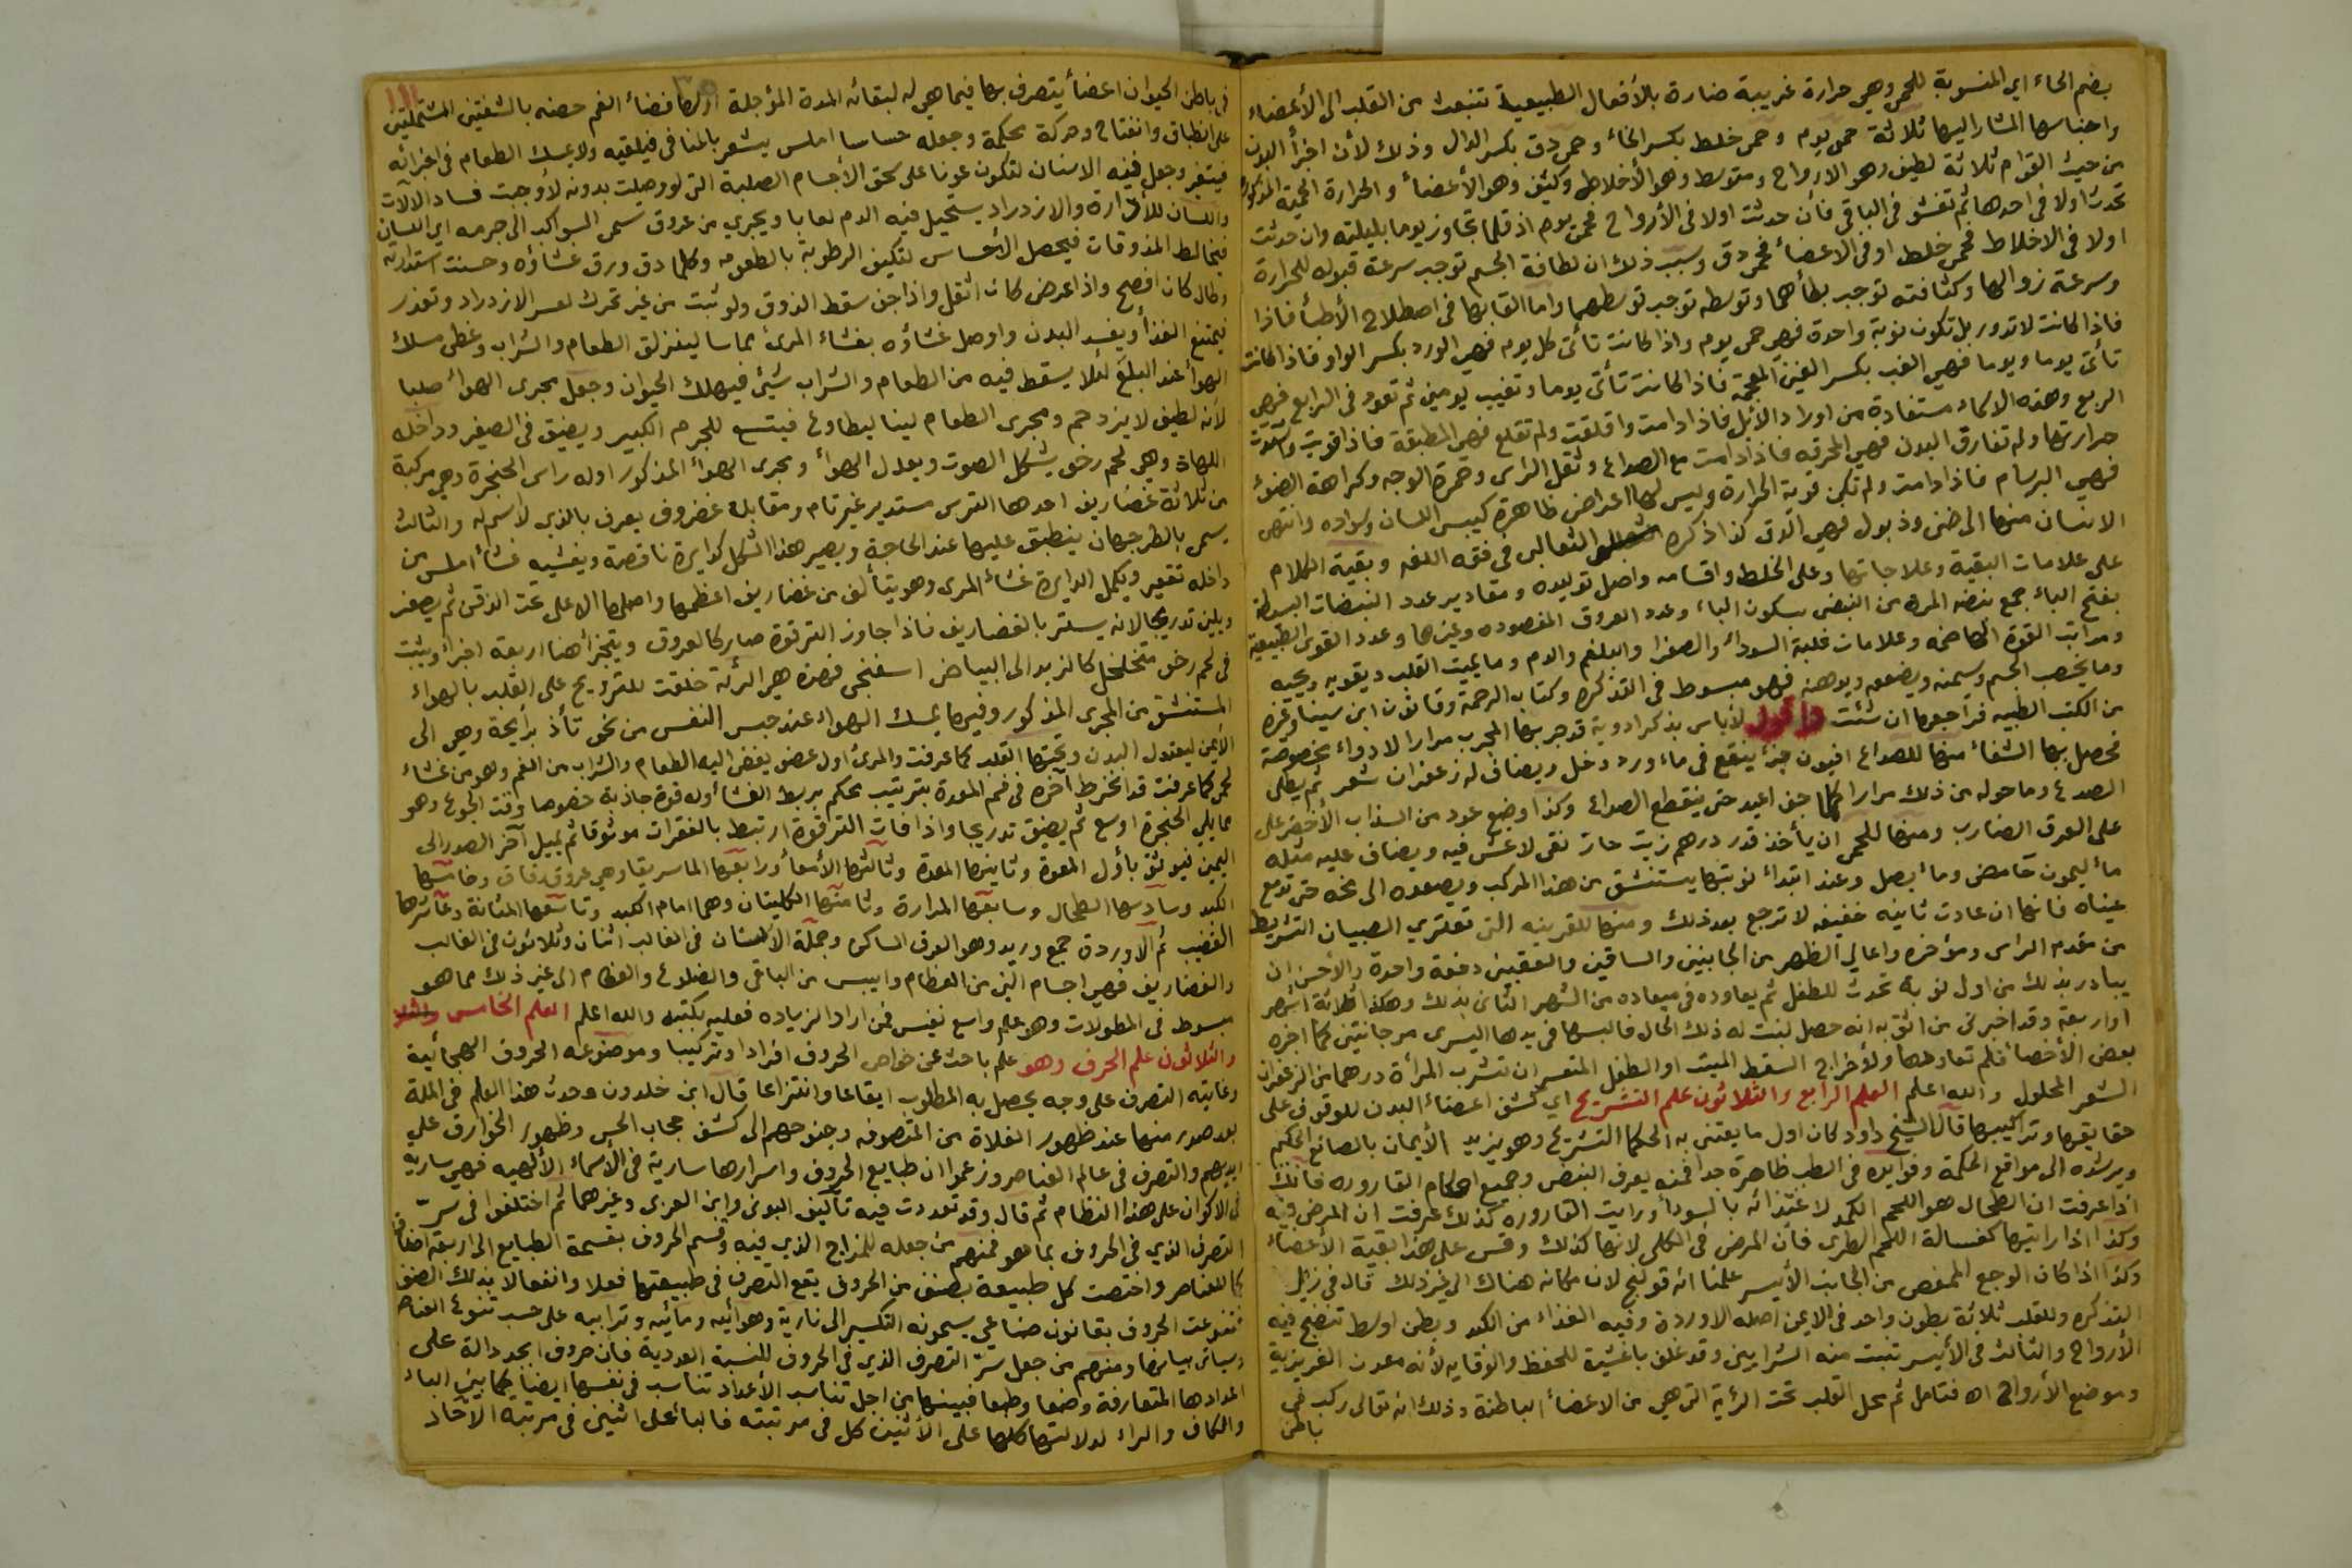 بضم الحاء اي المنسوبة للحمى وهي حرارة غريبة ضارة بالأفعال الطبيعية تنبعث من القلب الى الأعضاء
واجناسها المشار اليها ثلاثة حمى يوم وحمى خلط بكسر الخاء وحمى دق بكسر الدال وذلك لأن اجزأ البدن
من حيث القوام ثلاثة لطيف وهو الارواح ومتوسط وهو الأخلاط وكثيف وهو الأعضاء والحرارة الحمية المذكورة
تحدث اولا في احدها ثم تفشو في الباقي فأن حدثت اولا في الأرواح فحمى يوم اذ قلما تجاوز يوما بليلته وان حدثت
اولا في الاخلاط فحمى خلط او في الاعضاء فحمى دق وسبب ذلك ان لطافة الجسم توجب سرعة قبوله للحرارة
وسرعة زوالها وكثافته توجب بطأهما وتوسطه توجب توسطهما واما القابها في اصطلاح الأطبأ فاذا
فاذا كانت لا تدور بل تكون نوبة واحدة فهي حمى يوم واذا كانت تأتى كل يوم فهي الورد بكسر الواو فاذا كانت
تأتى يوما ويوما فهي الغب بكسر الغين المعجمة فاذا كانت تأتى يوما وتغيب يومين ثم تعود في الرابع فهي
الربع وهذه الاسماء مستفادة من اوراد الأبل فاذا دامت واقلقت ولم تقلع فهي المطبقة فاذا قويت واشتدت
حرارتها ولم تفارق البدن فهي المحرقه فاذا دامت مع الصداع وثقل الراس وحمرة الوجه وكراهة الضوء
فهي البرسام فاذا دامت ولم تكن قوية الحرارة وليس لها اعراض ظاهرة كيبس اللسان وسواده وانتهى
الانسان منها الى ضنى وذبول فهي الدق كذا ذكره الثعالبى في فقه اللغه وبقية الكلام
على علامات البقية وعلاجاتها وعلى الخلط واقسامه واصل توليده ومقادير عدد النبضات البسيطة
بفتح الباء جمع نبضه المرة من النبض بسكون الباء وعدد العروق المفصوده وغيرها وعدد القوى الطبيعية
ومراتب القوة الهاضمه وعلامات غلبة السوداء والصفرا والبلغم والدم وما يميت القلب ويقويه ويحيه
وما يخصب الجسم ويسمنه ويضعفه ويوهنه فهو مبسوط في التذكره وكتاب الرحمة وقانون ابن سينا وغيره
من الكتب الطبيه فراجعها ان شئت واقول لا بأس بذكر ادوية قد جربها المجرب مرارا الادواء مخصوصة
فحصل بها الشفاء منها للصداع افيون جزأ ينقع في ماء ورد وخل ويضاف له زعفران شعر ثم يطلى
الصدغ وما حوله من ذلك مرارا كلما جف اعيد حتى ينقطع الصداع وكذا وضع عود من السذاب الأخضر على
على العرق الضارب ومنها للحمى ان يأخذ قدر درهم زيت حار نقى لا غش فيه ويضاف عليه مثله
مأ ليمون حامض ومأ بصل وعند ابتداء نوبتها يستنشق من هذا المركب ويصعده الى مخه حتى تدمع
عيناه فانها ان عادت ثانيه خفيفه لا ترجع بعد ذلك ومنها للقرينه التى تعتري الصبيان التشريط
من مقدم الراس ومؤخره واعالي الظهر من الجانبين والساقين والعقبين دفعة واحدة والأحسن ان
يبادر بذلك من اول نوبة تحدث للطفل ثم يعاوده في ميعاده من الشهر الثانى بذلك وهكذا ثلاثة اشهر
او اربعة وقد اخبرني من اثق به انه حصل لبنت له ذلك الحال فالبسها في يدها اليسرى مرجانتين كما اخبره
بعض الأخصاء فلم تعاودها ولأخراج السقط الميت او الطفل المتعسر ان تشرب المرأة درهما من الزعفران
الشعر المحلول والله اعلم العلم الرابع والثلاثون علم التشريح اي كشف اعضاء البدن للوقوف على
حقايقها وتراكيبها قال الشيخ داود كان اول ما يعتنى به الحكما التشريح وهو يزيد الأيمان بالصانع الحكيم
ويرشده الى مواقع الحكمة وفوايده في الطب ظاهرة جدا فمنه يعرف النبض وجميع احكام القاروره فانك
اذا عرفت ان الطحال هو اللحم الكمد لاغتذائه بالسوداء ورايت القاروره كذلك عرفت ان المرض فيه
وكذا اذا رايتها كغسالة اللحم الطرى فأن المرض في الكلى لانها كذلك وقس على هذا بقية الأعضاء
وكذا اذا كان الوجع الممغص من الجانب الأيسر علمنا انه قولنج لان مكانه هناك الى غير ذلك قال في ذيل
التذكره وللقلب ثلاثة بطون واحد في الايمن اصله الاوردة وفيه الغذاء من الكبد وبطن اوسط تنضج فيه
الأرواح والثالث في الأيسر تنبت منه الشرايين وقد غلف باغشية للحفظ والوقايه لأنه معدن الغريزية
وموضع الأرواح اه فتامل ثم محل القلب تحت الرئة التى هي من الاعضاء الباطنة وذلك انه تعالى ركب في
باطن
١٩١
في باطن الحيوان اعضأ يتصرف بها فيما هي له لبقائه المدة المؤجلة اولها فضاء الفم حصنه بالشفتين المشتملتين
على انطباق وانفتاح وحركة محكمة وجعله حساسا املس يشعر بالمنافى فيلقيه ولا يمسك الطعام في اجزائه
فيتغير وجعل فيه الاسنان لتكون عونا على سحق الأجسام الصلبة التى لو وصلت بدونه لأوجبت فساد الآلات
واللسان للأدارة والازدراد يستحيل فيه الدم لعابا ويجري من عروق سمى السواكب الى جرمه اي اللسان
فيخالط المذوقات فيحصل الأحساس لتكيف الرطوبة بالطعوم وكلما دق ورق غشاؤه وحسنت استدارته
وطال كان افصح واذا عرض كان اثقل واذا جف سقط الذوق ولو ثبت من غير تحرك لعسر الازدراد وتعذر
فيمتنع الغذأ ويفسد البدن واوصل غشاؤه بغشاء المرئ مماسا لينزلق الطعام والشراب وغطى مسلك
الهوأ عند البلع لئلا يسقط فيه من الطعام والشراب شئ فيهلك الحيوان وجعل مجرى الهواء صلبا
لأنه لطيف لا يزدحم ومجرى الطعام لينا ليطاوع فيتسع للجرم الكبير ويضيق في الصغير وداخله
اللهاة وهي لحم رخو يشكل الصوت ويعدل الهوأ ومجرى الهواء المذكور اوله راس الحنجرة وهي مركبة
من ثلاثة غضاريف احدها الترس مستدير غير تام ومقابله غضروف يعرف بالذي لا اسم له والثالث
يسمى بالطرجهان ينطبق عليها عند الحاجة ويصير هذا الشكل كدايرة ناقصة ويغشيه غشأ املس من
داخله تقعير ويكمل الدايرة غشاء المرى وهو يتألف من غضاريف اعظمها واصلها الاعلى تحت الذقن ثم يصغر
ويلين تدريجا لانه يستتر بالغضاريف فاذا جاوز الترقوة صار كالعروق ويتجزأ هنا اربعة اجزأ ويثبت
في لحم رخو متخلخل كالزبد الى البياض اسفنجى فهذه هي الرئة خلقت للترويح على القلب بالهواء
المستنشق من المجرى المذكور وفيها يمسك الهواء عند حبس النفس من نحو تأذ برايحة وهي الى
الأيمن ليعتدل البدن وتحتها القلب كما عرفت والمرئ اول عضو يفضى اليه الطعام والشراب من الفم وهو من غشاء
لحمى كما عرفت قد انخرط آخره في فم المعدة بترتيب محكم يربط الغشأ وله قوة جاذبة خصوصا وقت الجوع وهو
مما يلي الحنجرة اوسع ثم يضيق تدريجا واذا فات الترقوة ارتبط بالفقرات موثوقا ثم يميل آخر الصدر الى
اليمين فيوثق باول المعدة وثانيها المعدة وثالثها الأمعأ ورابعها الماسريقا وهي عروق دقاق وخامسها
الكبد وسادسها الطحال وسابعها المرارة وثامنها الكليتان وهما امام الكبد وتاسعها المثانة وعاشرها
القضيب ثم الاوردة جمع وريد وهو العرق الساكن وجملة الأسنان في الغالب اثنان وثلاثون في الغالب
والغضاريف فهي اجسام الين من العظام وايبس من الباقى والضلوع والعظام الى غير ذلك مما هو
مبسوط في المطولات وهو علم واسع نفيس فمن اراد الزياده فعليه بكتبه والله اعلم العلم الخامس
والثلاثون علم الحرف وهو علم باحث عن خواص الحروف افرادا وتركيبا وموضوعه الحروف الهجائية
وغايته التصرف على وجه يحصل به المطلوب ايقاعا وانتزاعا قال ابن خلدون وحدث هذا العلم في الملة
بعد صدر منها عند ظهور الغلاة من المتصوفه وجنوحهم الى كشف حجاب الحس وظهور الخوارق على
ايديهم والتصرف في عالم العناصر وزعموا ان طبايع الحروف واسرارها سارية في الأسماء الألهيه فهي سارية
في الاكوان على هذا النظام ثم قال وقد تعددت فيه تآليف البونى وابن العربى وغيرهما ثم اختلفوا في سر
التصرف الذي في الحروف بما هو فمنهم من جعله للمزاج الذي فيه وقسم الحروف بقسمة الطبايع الى اربعة اصناف
كما للعناصر واختصت كل طبيعة بصنف من الحروف يقع التصرف في طبيعتها فعلا وانفعالا بذلك الصنف
فتنوعت الحروف بقانون صناعي يسمونه التكسير الى نارية وهوائيه ومائيه وترابيه على حسب تنوع العناصر
وسياتى بيانها ومنهم من جعل سر التصرف الذي في الحروف للنسبة العددية فان حروف ابجد دالة على
اعدادها المتعارفة وضعا وطبعا فبينها من اجل تناسب الأعداد تناسب في نفسها ايضا كما بين الباء
والكاف والراء لدلالتها كلها على الأثنين كل في مرتبته فالباء على اثنين في مرتبة الآحاد